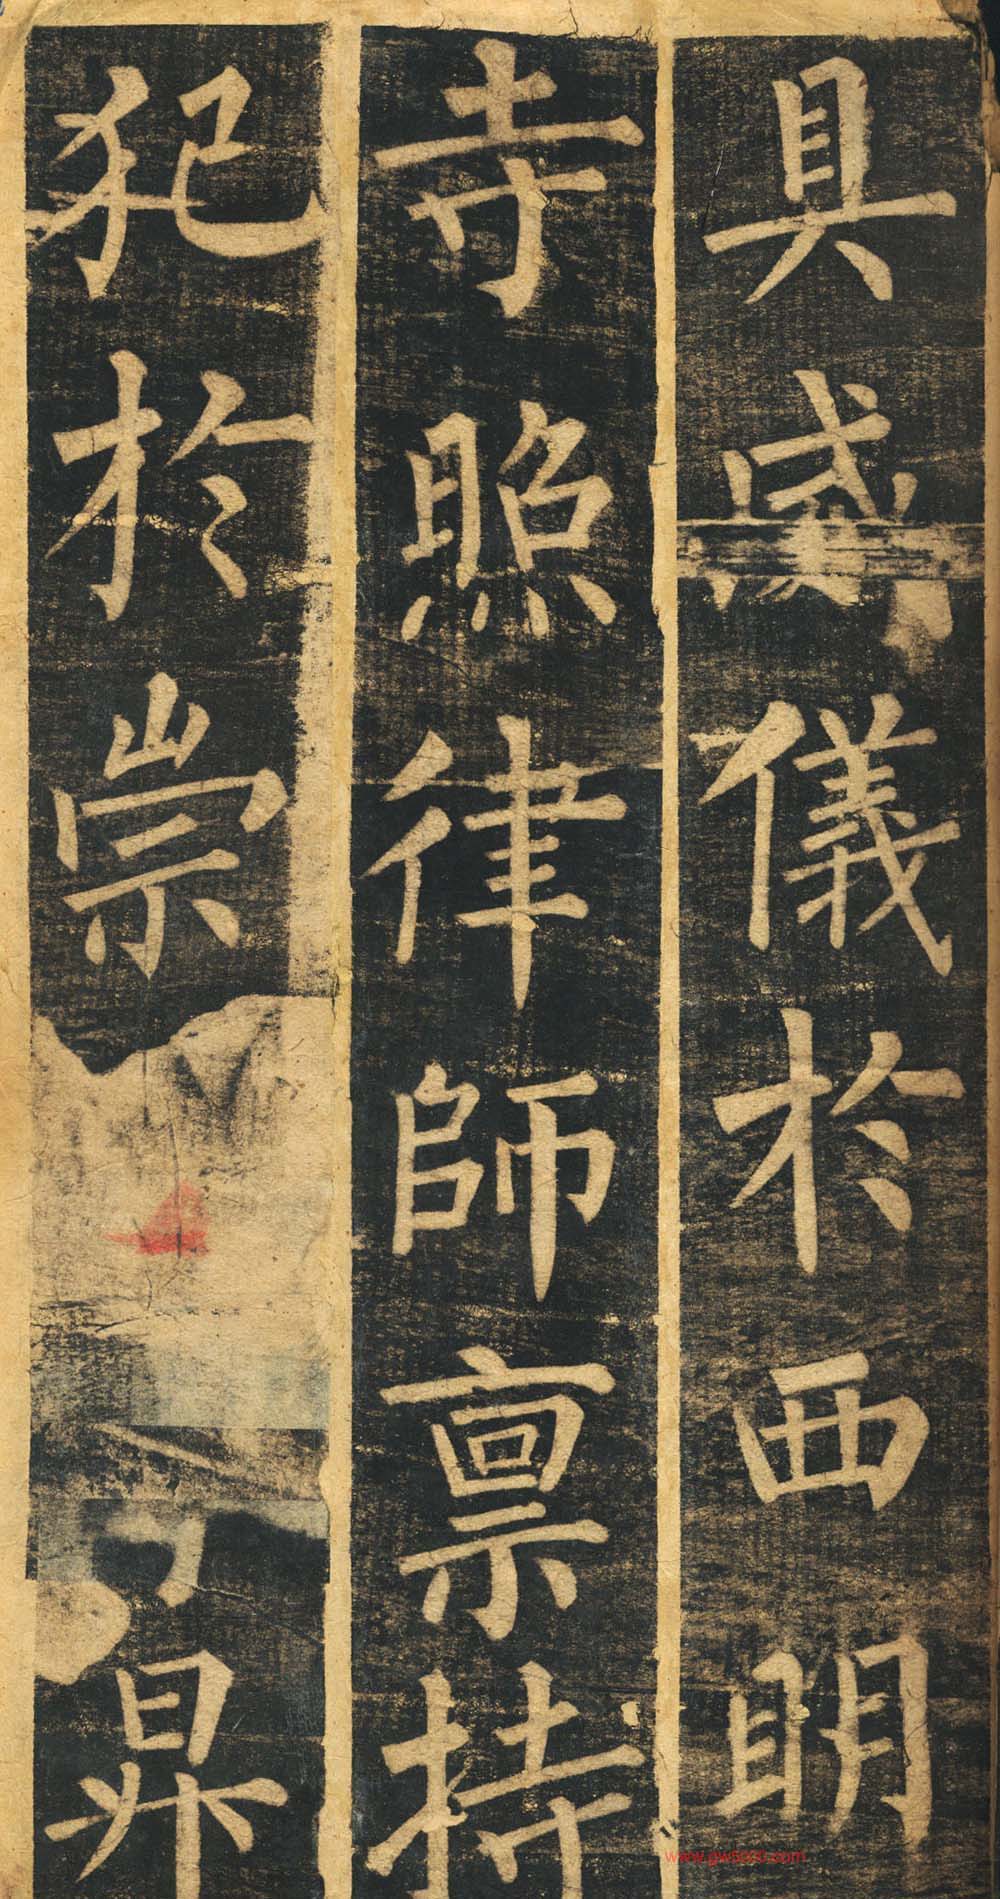 具威儀於西明
寺照律師禀持
犯於崇昇